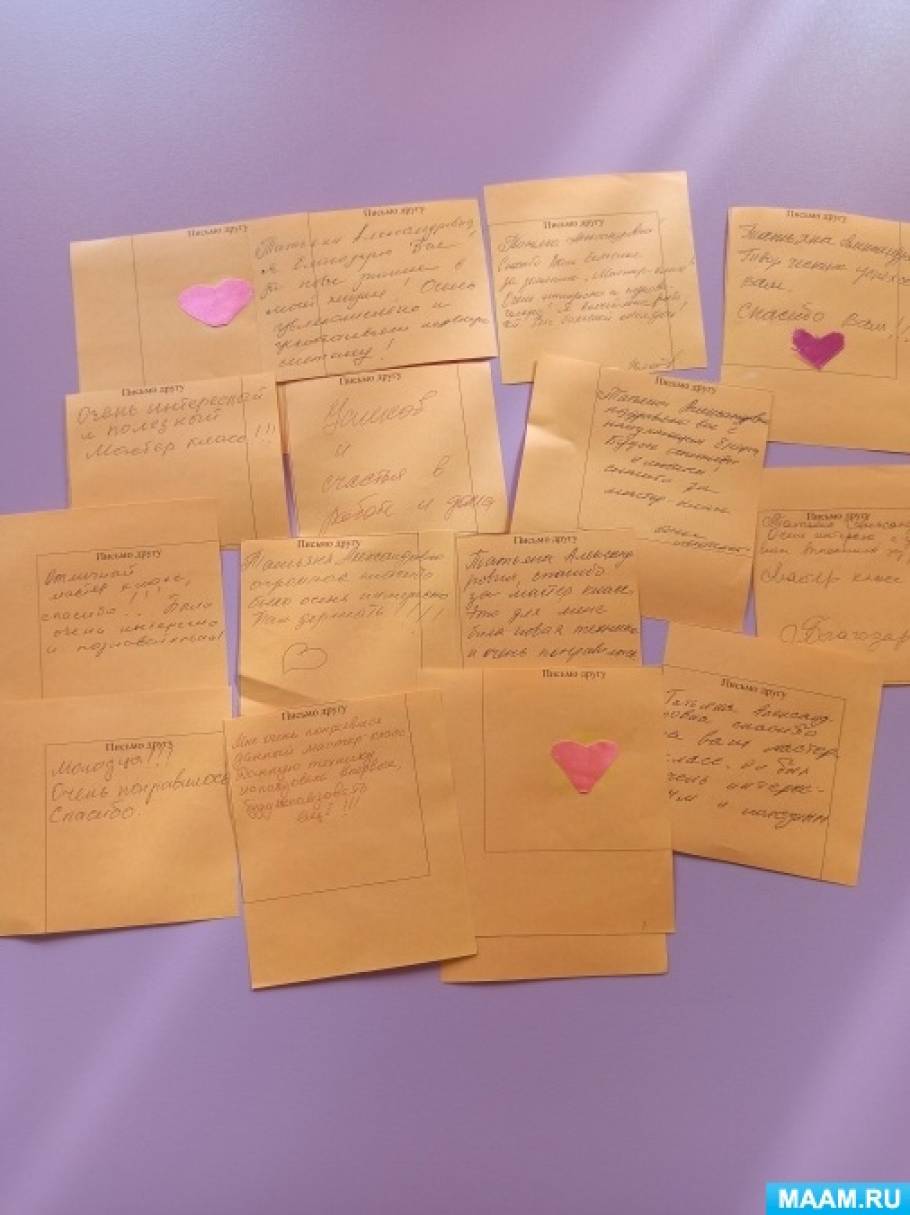 Письмо другу
Письмо другу
Татьяна Александровна
я благодарю Вас
моей жизни! Очень
увлекательно и
Письмо другу
Татьяна Александровна
Спасибо Вам большое
за мастер-класс!
Очень интересно и
Письмо другу
Татьяна Александров
Творческих успехов
Вам.
Спасибо Вам!!!
Письмо другу
Очень интересный
и полезный
Мастер класс!!!
Письмо другу
Успехов
и
счастья в
работе и дома
Письмо другу
Татьяна Александровна
поздравляю вас с
спасибо за
мастер-класс
Письмо другу
Очень интересно
Мастер класс
Благодар
Письмо другу
Отличный
мастер класс,
спасибо!!! Было
очень интересно
и познавательно!
Письмо другу
Татьяна Александровна
огромное спасибо
было очень интересно
Так держать!!!
Письмо другу
Татьяна Александ
ровна, спасибо
за мастер класс.
Это для меня
была новая техника
и очень понравилось
Письмо другу
Молодца!!!
Очень понравилось
Спасибо.
Письмо другу
Мне очень понравился
данный мастер-класс
Данную технику
использовала впервые,
буду использовать
ещё!!!
Письмо другу
Письмо другу
Татьяна Александ
ровна спасибо
за ваш мастер
класс, он был
очень интерес-
ным и полезным
MAAM.RU